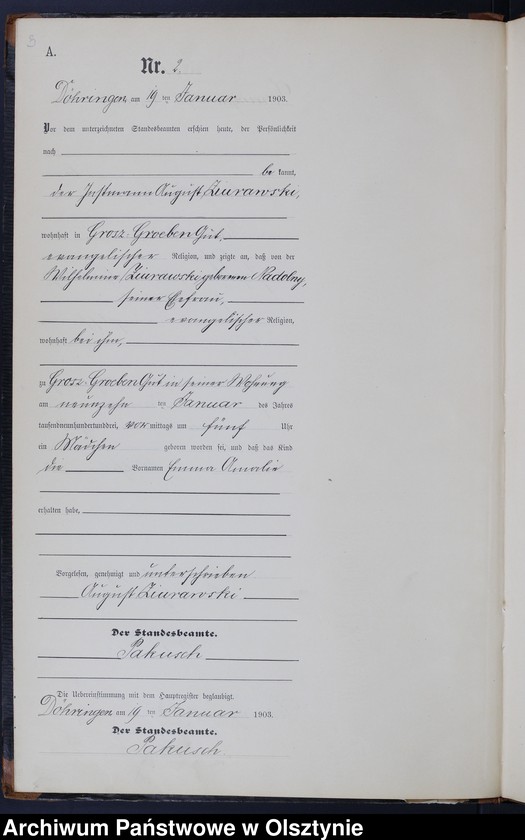 3
A.
Nr. 2.
Döhringen am 19 ten Januar 1903.
Vor dem unterzeichneten Standesbeamten erschien heute, der Persönlichkeit
nach
be kannt,
der Instmann August Ziurawski,
wohnhaft in Grosz-Groeben Gut,
evangelischer Religion, und zeigte an, daß von der
Wilhelmine Ziurawski geborenen Nadolny,
seiner Ehefrau,
evangelischer Religion,
wohnhaft bei ihm,
zu Grosz-Groeben Gut in seiner Wohnung
am neunzehn ten Januar des Jahres
tausendneunhundertunddrei, vor mittags um fünf Uhr
ein Mädchen geboren worden sei, und daß das Kind
die Vornamen Emma Amalie
erhalten habe,
Vorgelesen, genehmigt und unterschrieben
August Ziurawski
Der Standesbeamte.
Pakusch
Die Uebereinstimmung mit dem Hauptregister beglaubigt.
Döhringen am 19 ten Januar 1903.
Der Standesbeamte.
Pakusch
Archiwum Państwowe w Olsztynie